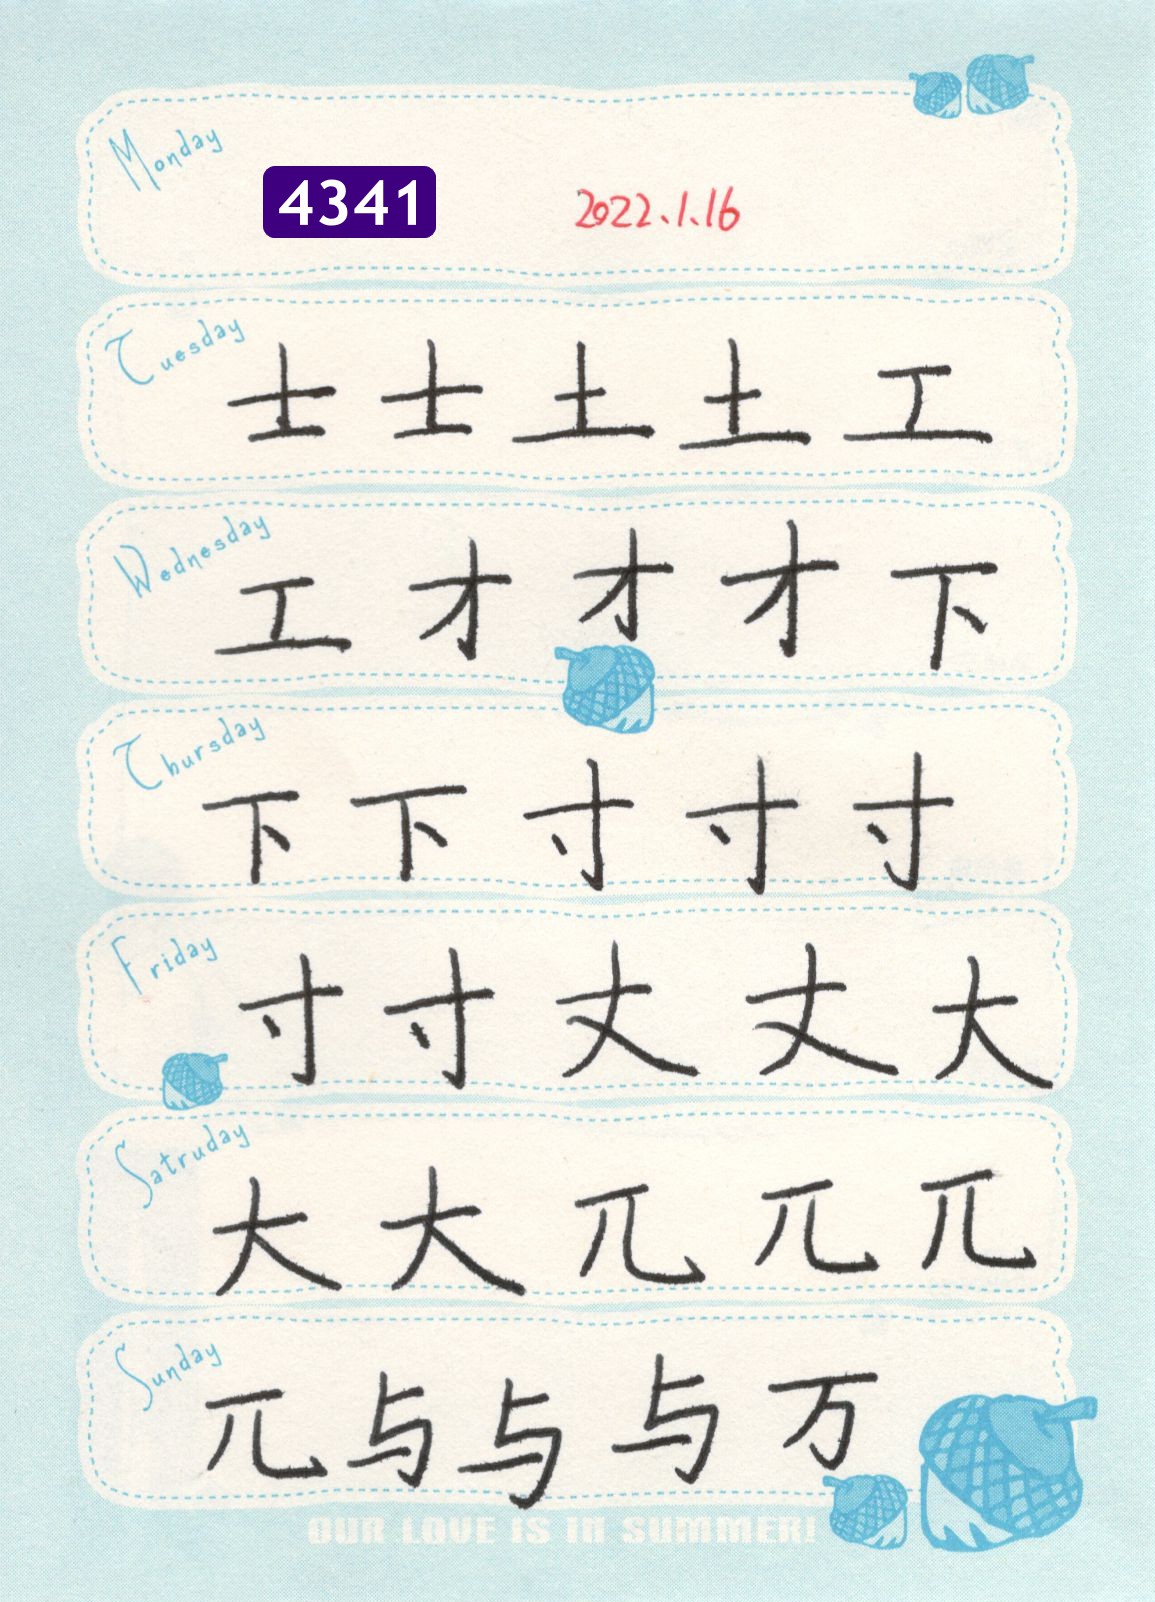 Monday
4341 2022.1.16
Tuesday
士 士 土 土 工
Wednesday
工 才 才 才 下
Thursday
下 下 寸 寸 寸
Friday
寸 寸 丈 丈 大
Satruday
大 大 兀 兀 兀
Sunday
兀 与 与 与 万
OUR LOVE IS IN SUMMER!